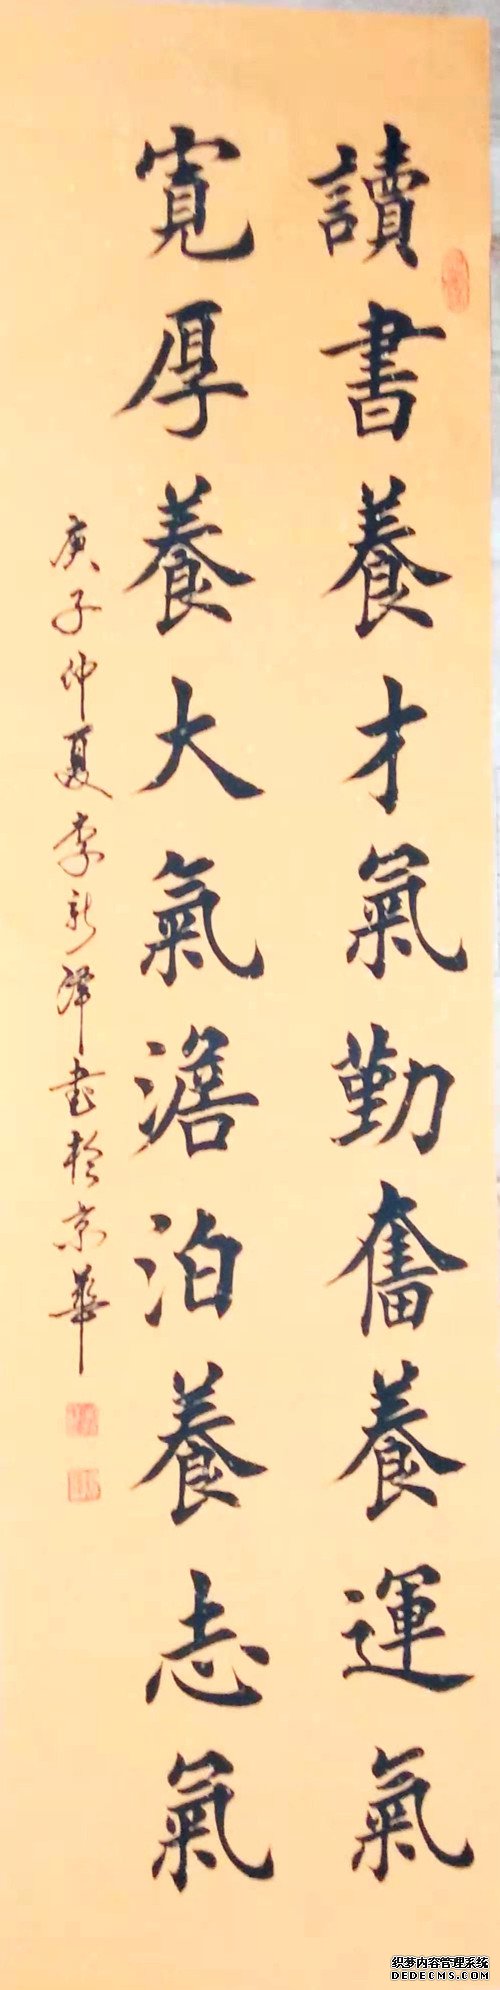 讀書養才氣勤奮養運氣
寬厚養大氣澹泊養志氣
庚子仲夏李新澤書於京華
织梦内容管理系统
DEDECMS.COM